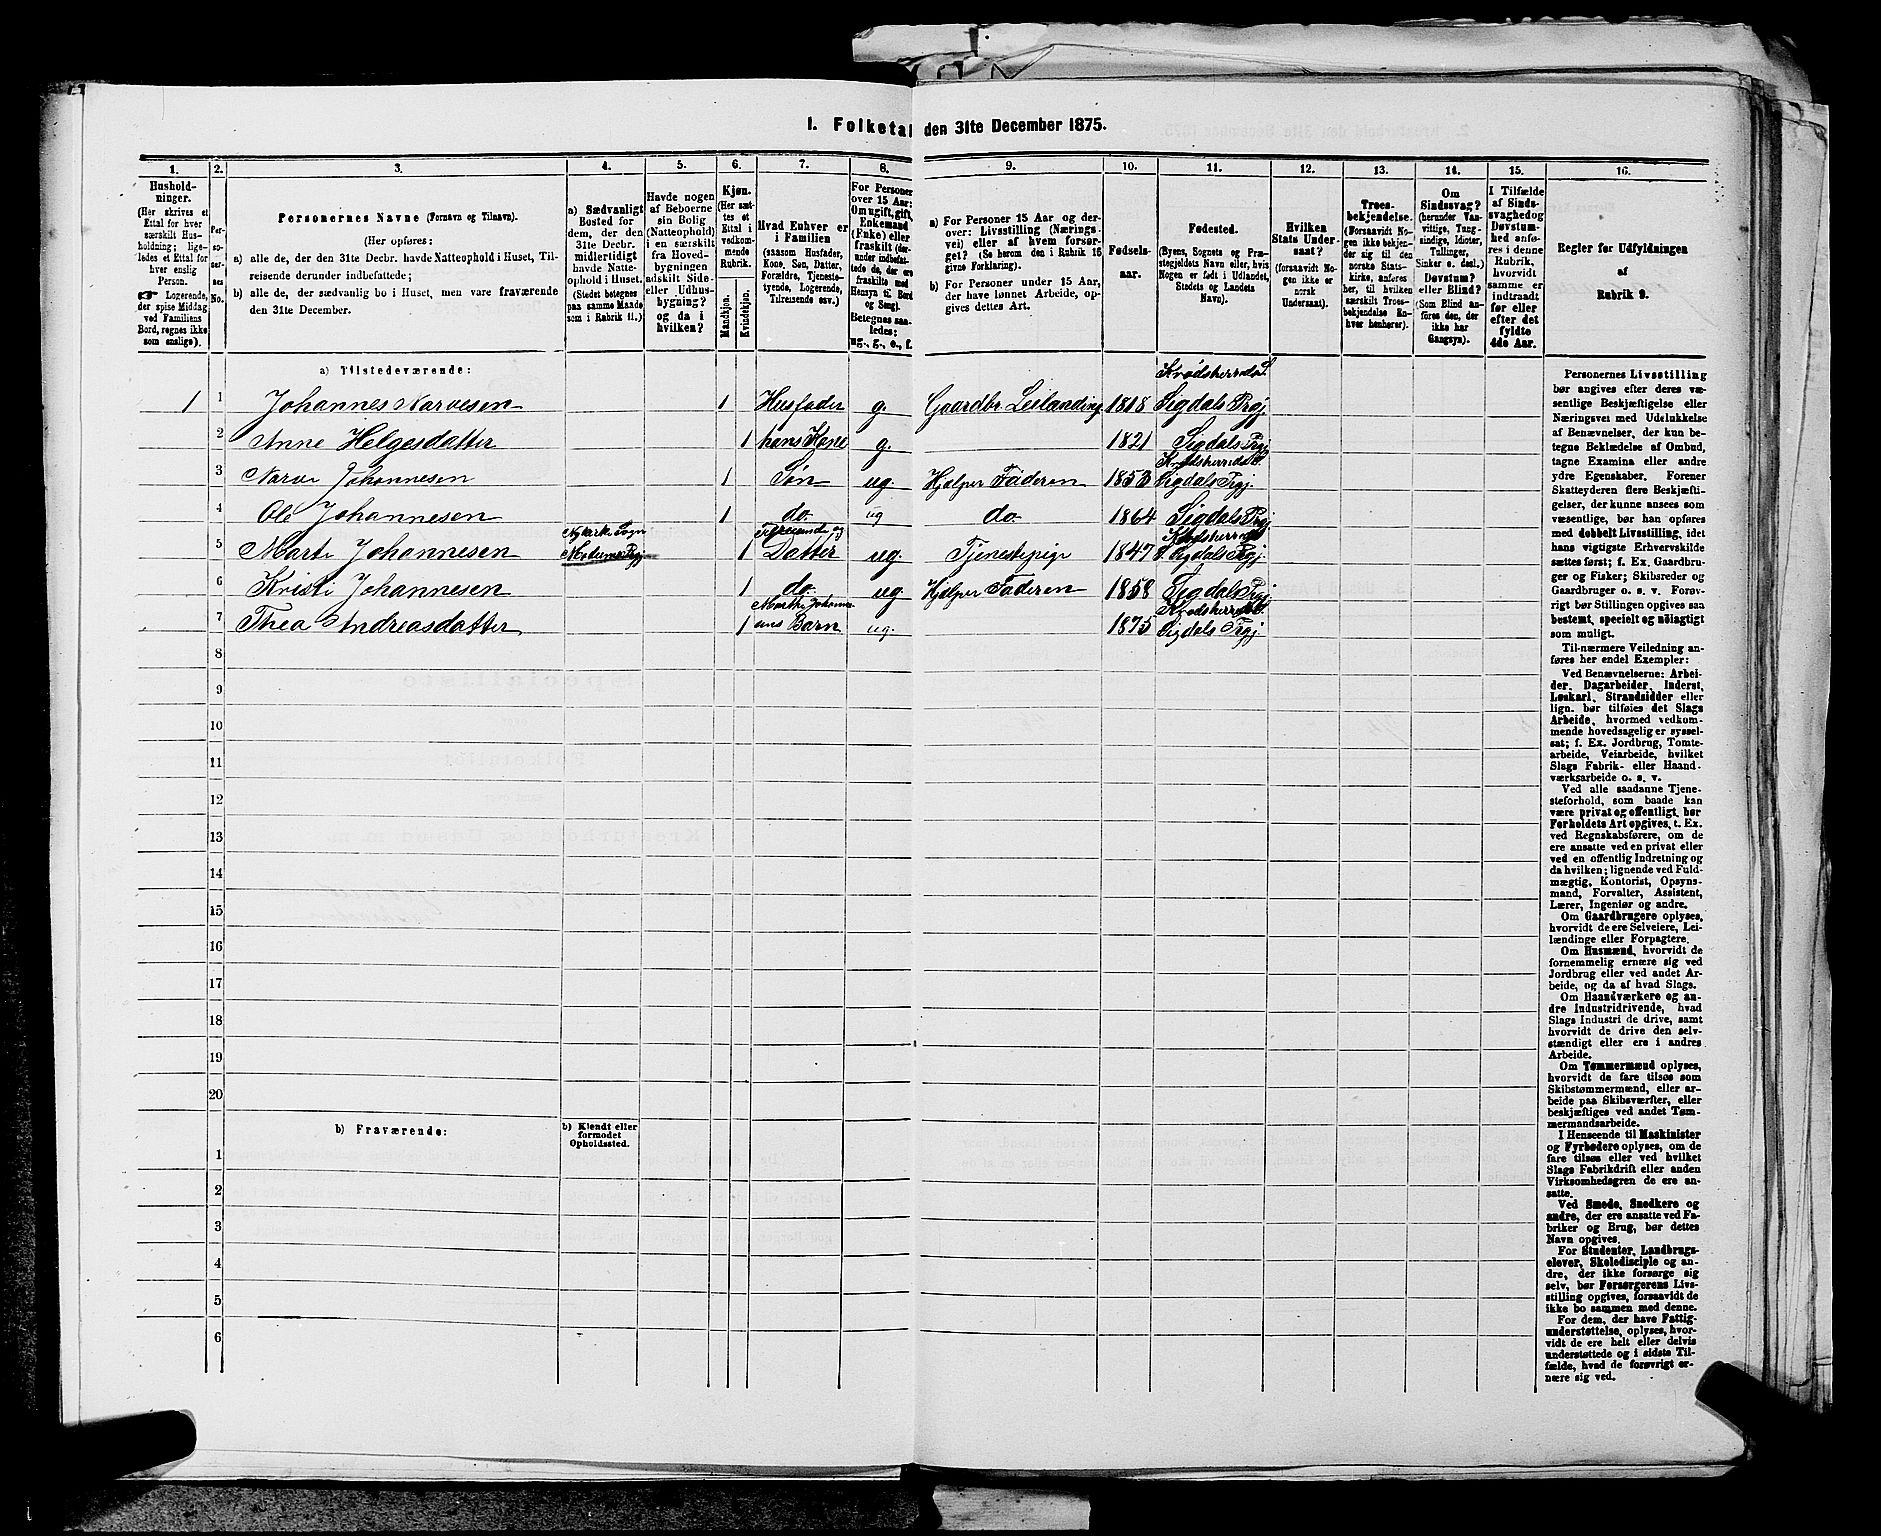 1. Folketal den 31te December 1875.
1.
2.
3.
4.
5.
6.
7.
8.
9.
10.
11.
12.
13.
14.
15.
16.
Hushold-
ninger.
(Her skrives et
Ettal for hver
særskilt Hus-
holdning; lige-
ledes et Ettal for
hver enslig
Person.
☛ Logerende,
der spise Middag
ved Familiens
Bord, regnes ikke
som enslige).
Per-
so-
ner-
ses-
No.
Personernes Navne (Fornavn og Tilnavn).
(Her opføres:
a) alle de, der den 31te Decbr. havde Natteophold i Huset, Til-
reisende derunder indbefattede;
b) alle de, der sædvanlig bo i Huset, men vare fraværende
den 31te December.
a) Sædvanligt
Bosted for
dem, der den
31te Decbr.
midlertidigt
havde Natte-
ophold i Huset.
(Stedet betegnes
paa samme Maade
som i Rubrik 11.)
Havde nogen
af Beboerne
sin Bolig
(Natteophold)
i en særskilt
fra Hoved-
bygningen
adskilt Side-
eller Udhus-
bygning?
og da i
hvilken?
Kjøn.
(Her sæt-
tes et
Ettal i
vedkom-
mende
Rubrik.
Mandkjøn.
Kvindekjøn.
Hvad Enhver er
i Familien
(saasom Husfader,
Kone, Søn, Datter,
Forældre, Tjeneste-
tyende, Logerende,
Tilreisende osv.)
For Personer
over 15 Aar:
Om ugift, gift,
Enkemand
(Enke) eller
fraskilt (der-
under indbefat-
tede de, der ere
fraskilte med
Hensyn til Bord
og Seng).
Betegnes saa-
ledes:
ug., g., e., f.
a) For Personer 15 Aar og der-
over: Livsstilling (Nærings-
vei) eller af hvem forsør-
get? (Se herom den i Rubrik 16
givne Forklaring).
b) For Personer under 15 Aar,
der have lønnet Arbeide, op-
gives dettes Art.
Fødsels-
aar.
Fødested.
(Byens, Sognets og Præ-
stegjeldets Navn eller, hvis
Nogen er født i Udlandet,
Stedets og Landets
Navn).
Hvilken
Stats Under-
saat?
(forsaavidt No-
gen ikke er
norsk
Undersaat).
Troes-
bekjendelse.
(Forsaavidt No-
gen ikke bekjen-
der sig til den
norske Stats-
kirke, anføres
her, til hvilken
særskilt Troes-
bekjendelse En-
hver henhører).
Om
Sindssvag?
(herunder Van-
vittige, Tung-
sindige, Idioter,
Tullinger,
Sinker o. desl.)
Døvstum?
eller Blind?
(Som Blind an-
føres den, der
ikke har
Gangsyn).
I Tilfælde
af Sinds-
svaghed og
Døvstum-
hed anfø-
res i denne
Rubrik,
hvorvidt
samme er
indtraadt
før eller
efter det
fyldte
4de Aar.
Regler for Udfyldningen
af
Rubrik 9.
a) Tilstedeværende:
Krødsherreds S.
1 1 Johannes Narvesen 1 Husfader g. Gaardbr. Leilænding 1818 Sigdals Prgj
2 Anne Helgesdatter 1 hans Kone g. 1821 Sigdals Prgj
Krødsherreds S.
3 Narve Johannesen 1 Søn ug. Hjælper Faderen 1853 Sigdals Prgj.
4 Ole Johannesen 1 do. ug do. 1864 Sigdals Prgj.
Nykirke Sogn Tilreisende og Krødsherreds
5 Marte Johannesen Modums Prgj 1 Datter ug. Tjenestepige 1847 S. Sigdals Prgj.
6 Kristi Johannesen 1 do. ug. Hjælper Faderen 1858 Sigdals Prgj.
Marthe Johanne- Krødsherreds S.
7 Thea Andreasdatter 1 sens Barn ug. 1875 Sigdals Prgj.
8
9
10
11
12
13
14
15
16
17
18
19
20
b) Fraværende:
b) Kjendt eller
formodet
Opholdssted.
1
2
3
4
5
6
Personernes Livsstilling
bør angives efter deres væ-
sentlige Beskjæftigelse eller
Næringsvei med Udelukkelse
af Benævnelser, der kun be-
tegne Beklædelse af Ombud,
tagne Examina eller andre
ydre Egenskaber. Forener
Skatteyderen flere Beskjæfti-
gelser, der kunne ansees som
væsentlige, bør han opføres
med dobbelt Livsstilling, idet
hans vigtigste Erhvervskilde
sættes først; f. Ex. Gaardbru-
ger og Fisker; Skibsreder og
Gaardbruger o. s. v. Forøv-
rigt bør Stillingen opgives saa
bestemt, specielt og nøiagtigt
som muligt.
Til nærmere Veiledning an-
føres her endel Exempler:
Ved Benævnelserne: Arbei-
der, Dagarbeider, Inderst,
Løskarl, Strandsidder eller
lign. bør tilføies det Slags
Arbeide, hvormed vedkom-
mende hovedsagelig er syssel-
sat; f. Ex. Jordbrug, Tomte-
arbeide, Veiarbeide, hvilket
Slags Fabrik- eller Haand-
værksarbeide o. s. v.
Ved alle saadanne Tjene-
steforhold, som baade kan
være privat og offentligt, bør
Forholdets Art opgives, t. Ex.
ved Regnskabsførere, om de
ere ansatte ved en privat eller
ved en offentlig Indretning og
da hvilken; lignende ved Fuld-
mægtig, Kontorist, Opsyns-
mand, Forvalter, Assistent,
Lærer, Ingeniør og andre.
Om Gaardbrugere oplyses,
hvorvidt de ere Selveiere, Lei-
lændinge eller Forpagtere.
Om Husmænd, hvorvidt de
fornemmelig ernære sig ved
Jordbrug eller ved andet Ar-
beide, og da af hvad Slags.
Om Haandværkere og an-
dre Industridrivende, hvad
Slags Industri de drive, samt
hvorvidt de drive den selv-
stændigt eller ere i andres
Arbeide.
Om Tømmermænd oplyses,
hvorvidt de fare tilsøs som
Skibstømmermænd, eller ar-
beide paa Skibsværfter, eller
beskjæftiges ved andet Tøm-
mermandsarbeide.
I Henseende til Maskinister
og Fyrbødere oplyses, om de
fare tilsøs eller ved hvilket
Slags Fabrikdrift eller anden
Virksomhedsgren de ere an-
satte.
Ved Smede, Snedkere og
andre, der ere ansatte ved Fa-
briker og Brug, bør dettes
Navn opgives.
For Studenter, Landbrugs-
elever, Skoledisciple og an-
dre, der ikke forsørge sig
selv, bør Forsørgerens Livs-
stilling opgives, forsaavidt de
ikke bo sammen med denne.
For dem, der have Fattig-
understøttelse, oplyses, hvor-
vidt de ere helt eller delvis
understøttede og i sidste Til-
fælde, hvad de forøvrigt er-
nære sig ved.